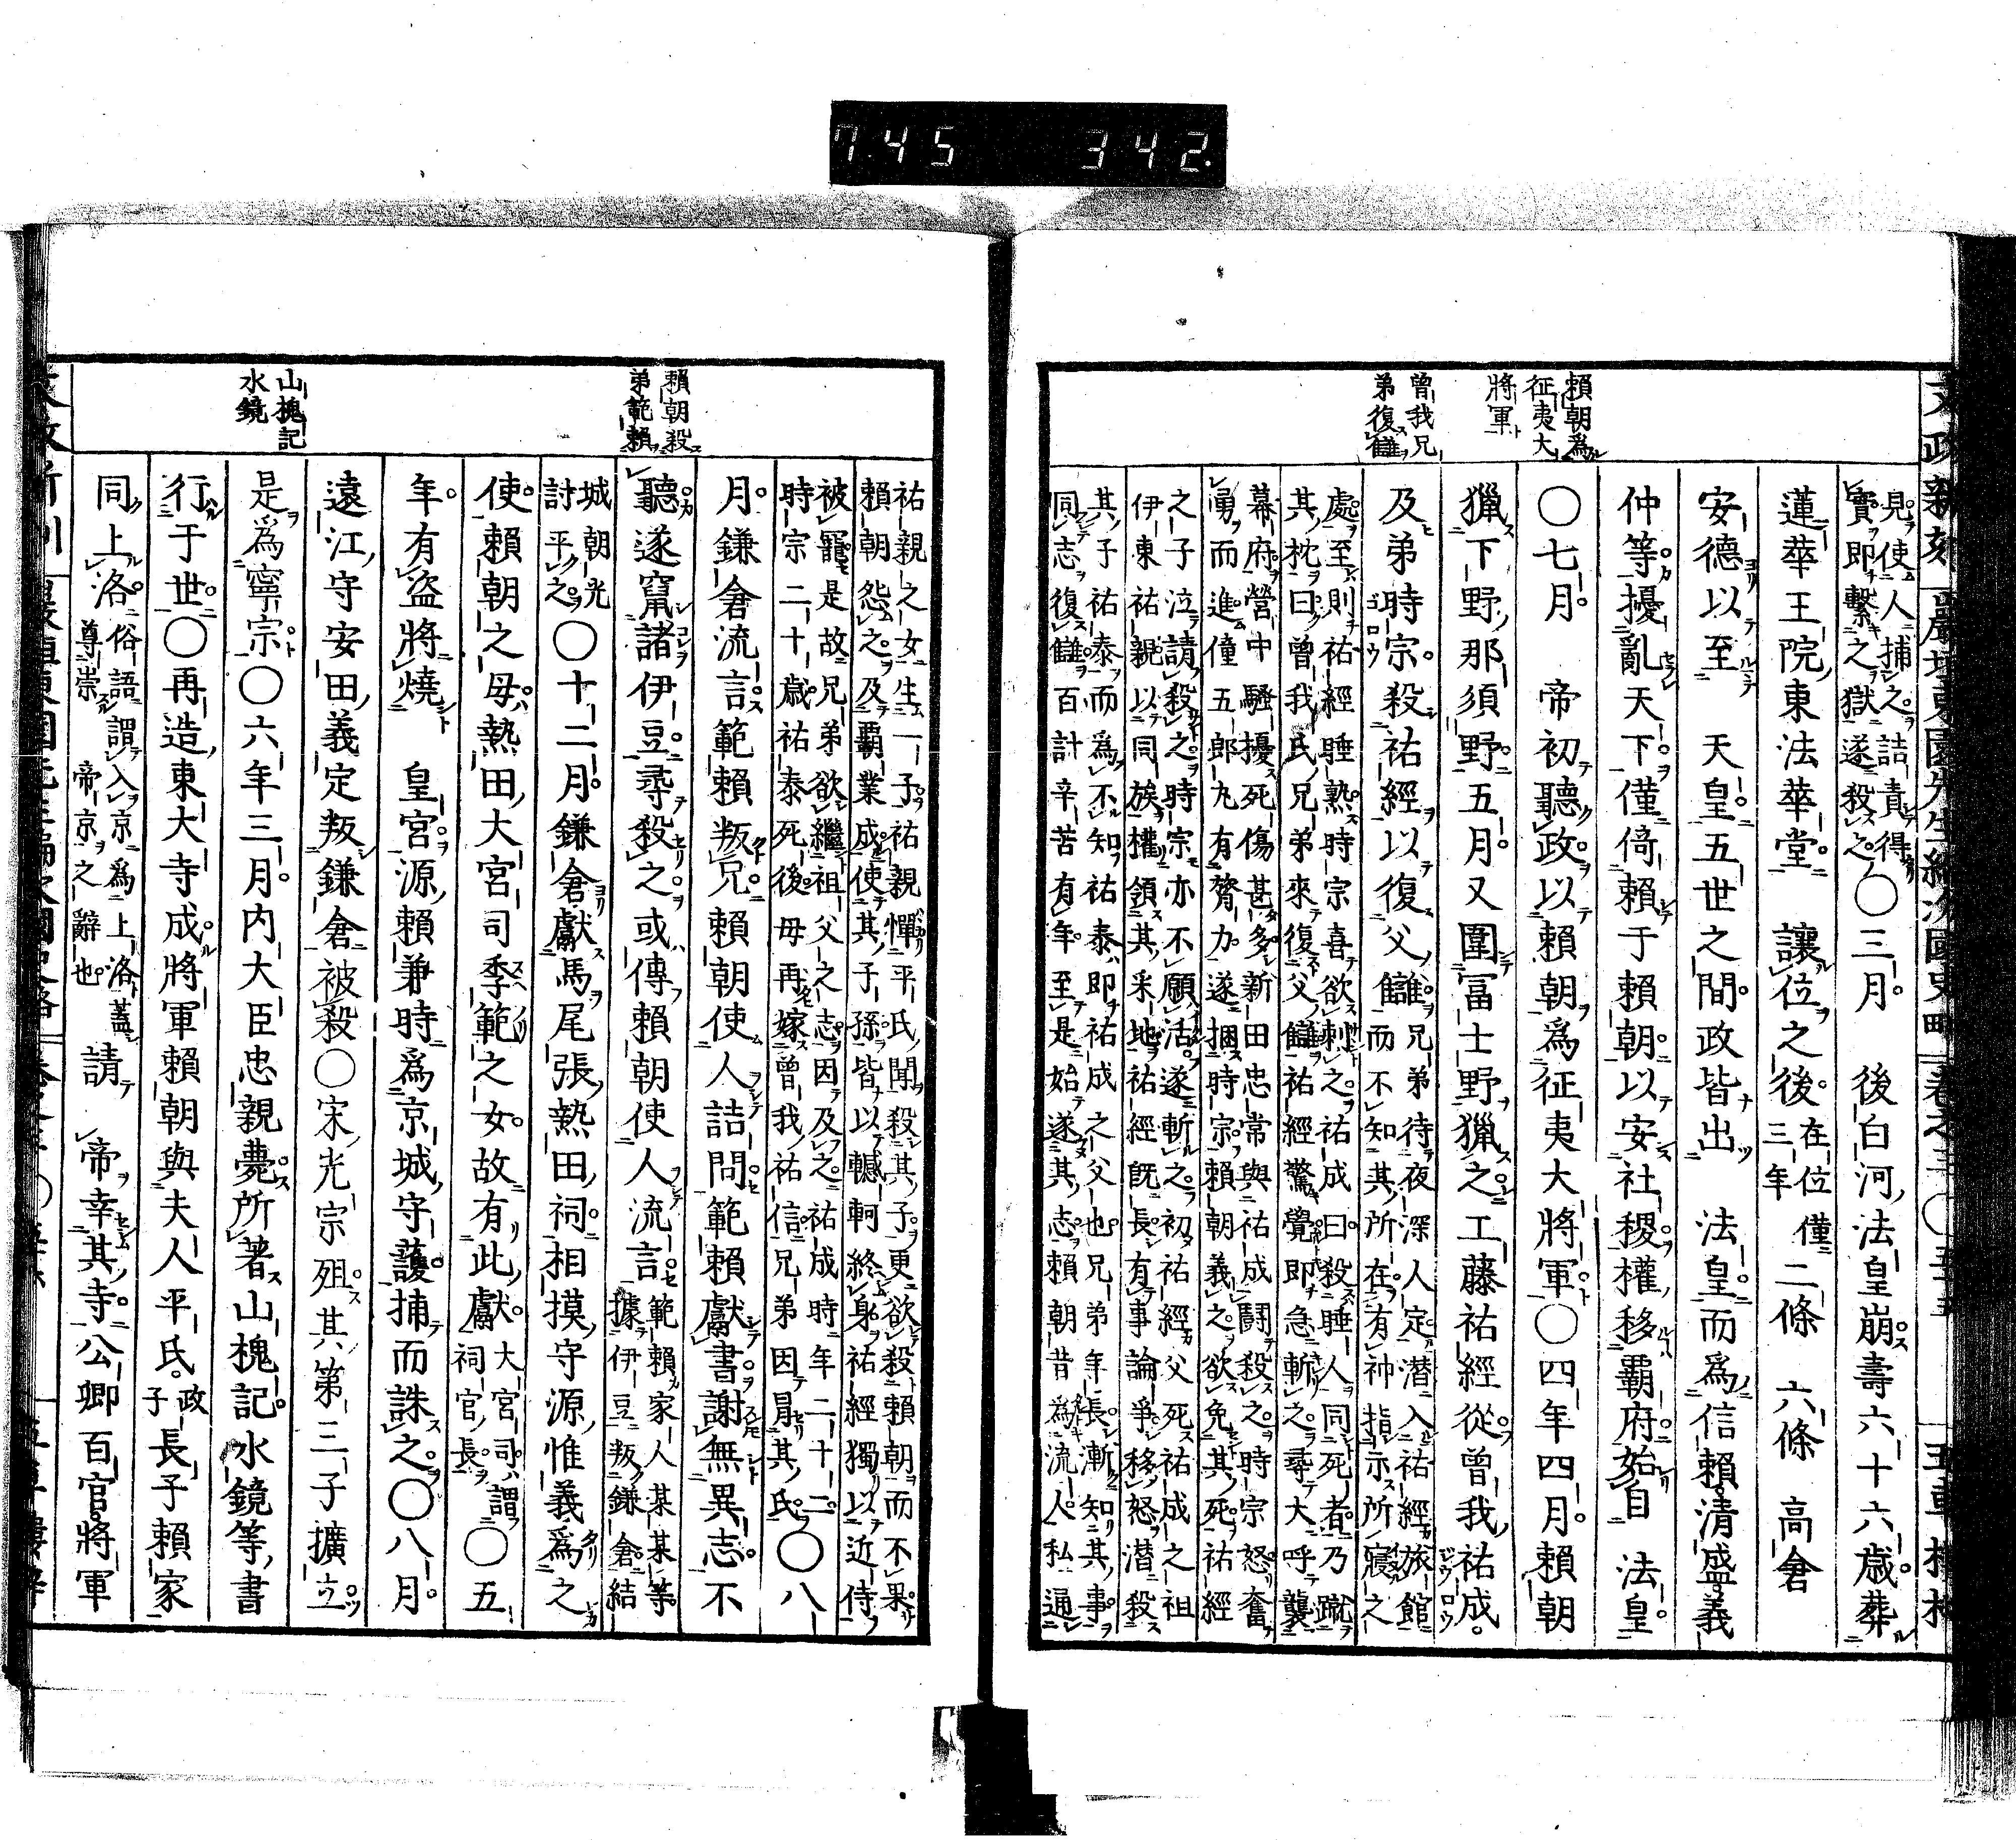 745 342
賴朝爲
征夷大
將軍
曾我兄
弟復讎
見使人捕之詰責得
實即繫之獄遂殺之〇三月　後白河法皇崩壽六十六歲葬
蓮華王院東法華堂　讓位之後在位三年僅二條　六條　高倉
安德以至　天皇五世之間政皆出　法皇而爲信賴清盛義
仲等擾亂天下僅倚賴于賴朝以安社稷權移覇府始自　法皇
〇七月　帝初聽政以賴朝爲征夷大將軍〇四年四月賴朝
獵下野那須野五月又圍冨士野獵之工藤祐經從曾我祐成
及弟時宗殺祐經以復父讎兄弟待夜深人定潜入祐經旅館
而不知其所在有神指示所寢之
處至則祐經睡熟時宗喜欲刺之祐成曰殺睡人同死者乃蹴
其枕曰曾我氏兄弟來復父讎祐經驚覺即急斬之尋大呼襲
幕府營中騷擾死傷甚多新田忠常與祐成鬪殺之時宗怒奮
勇而進僮五郎丸有膂力遂捆時宗賴朝義之欲免其死祐經
之子泣請殺之時宗亦不願活遂斬之初祐經父死祐成之祖
伊東祐親以同族權領其采地祐經旣長有事論爭移怒潜殺
其子祐泰而爲不知祐泰即祐成之父也兄弟年長漸知其事
同志復讎百計辛苦有年至是始遂其志賴朝昔為流人私通
賴朝殺
弟範賴
山槐記
水鏡
祐親之女生一子祐親憚平氏聞殺其子更欲殺賴朝而不果
賴朝怨之及覇業成使其子孫皆以轗軻終身祐經獨以近侍
被寵是故兄弟欲繼祖父之志因及之祐成時年二十二
時宗二十歲祐泰死後母再嫁曾我祐信兄弟因冐其氏〇八
月鎌倉流言範賴叛兄賴朝使人詰問範賴獻書謝無異志不
聽遂竄諸伊豆尋殺之或傳賴朝使人流言範賴家人某某等
據伊豆叛鎌倉結
城朝光
討平之〇十二月鎌倉獻馬尾張熱田祠相摸守源惟義爲之
使賴朝之母熱田大宮司季範之女故有此獻大宮司謂
祠官長〇五
年有盜將燒　皇宮源賴兼時爲京城守護捕而誅之〇八月
遠江守安田義定叛鎌倉被殺〇宋光宗殂其第三子擴立
是爲寧宗〇六年三月内大臣忠親薨所著山槐記水鏡等書
行于世〇再造東大寺成將軍賴朝與夫人平氏政子長子賴家
同上洛俗語謂入京爲上洛蓋
尊崇帝京之辭也請　帝幸其寺公卿百官將軍